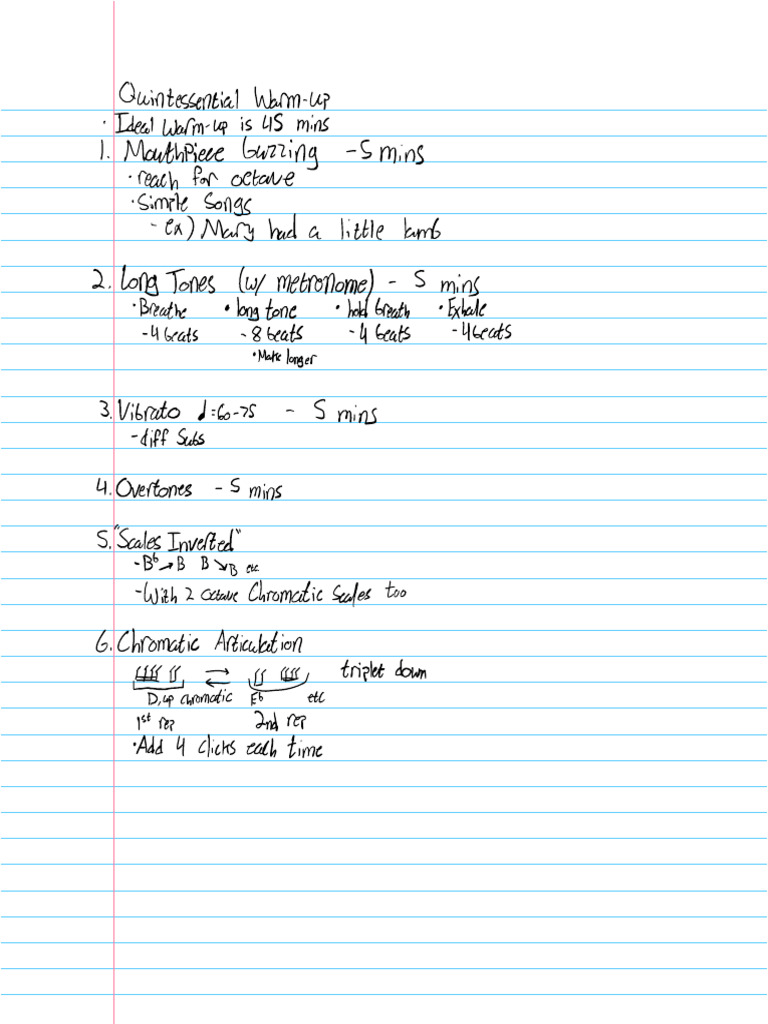 Quintessential Warm-up
· Ideal warm-up is 45 mins
1. Mouthpiece buzzing - 5 mins
· reach for octave
· Simple Songs
- ex) Mary had a little lamb
2. Long Tones (w/ metronome) - 5 mins
· Breathe · long tone · hold breath · Exhale
- 4 beats - 8 beats - 4 beats - 4 beats
· Make longer
3. Vibrato ♩=60-75 - 5 mins
- diff Subs
4. Overtones - 5 mins
5. "Scales Inverted"
- Bb → B B ↘ B etc
- With 2 octave Chromatic Scales too
6. Chromatic Articulation
→ ← triplet down
D, up chromatic Eb etc
1st rep 2nd rep
· Add 4 clicks each time